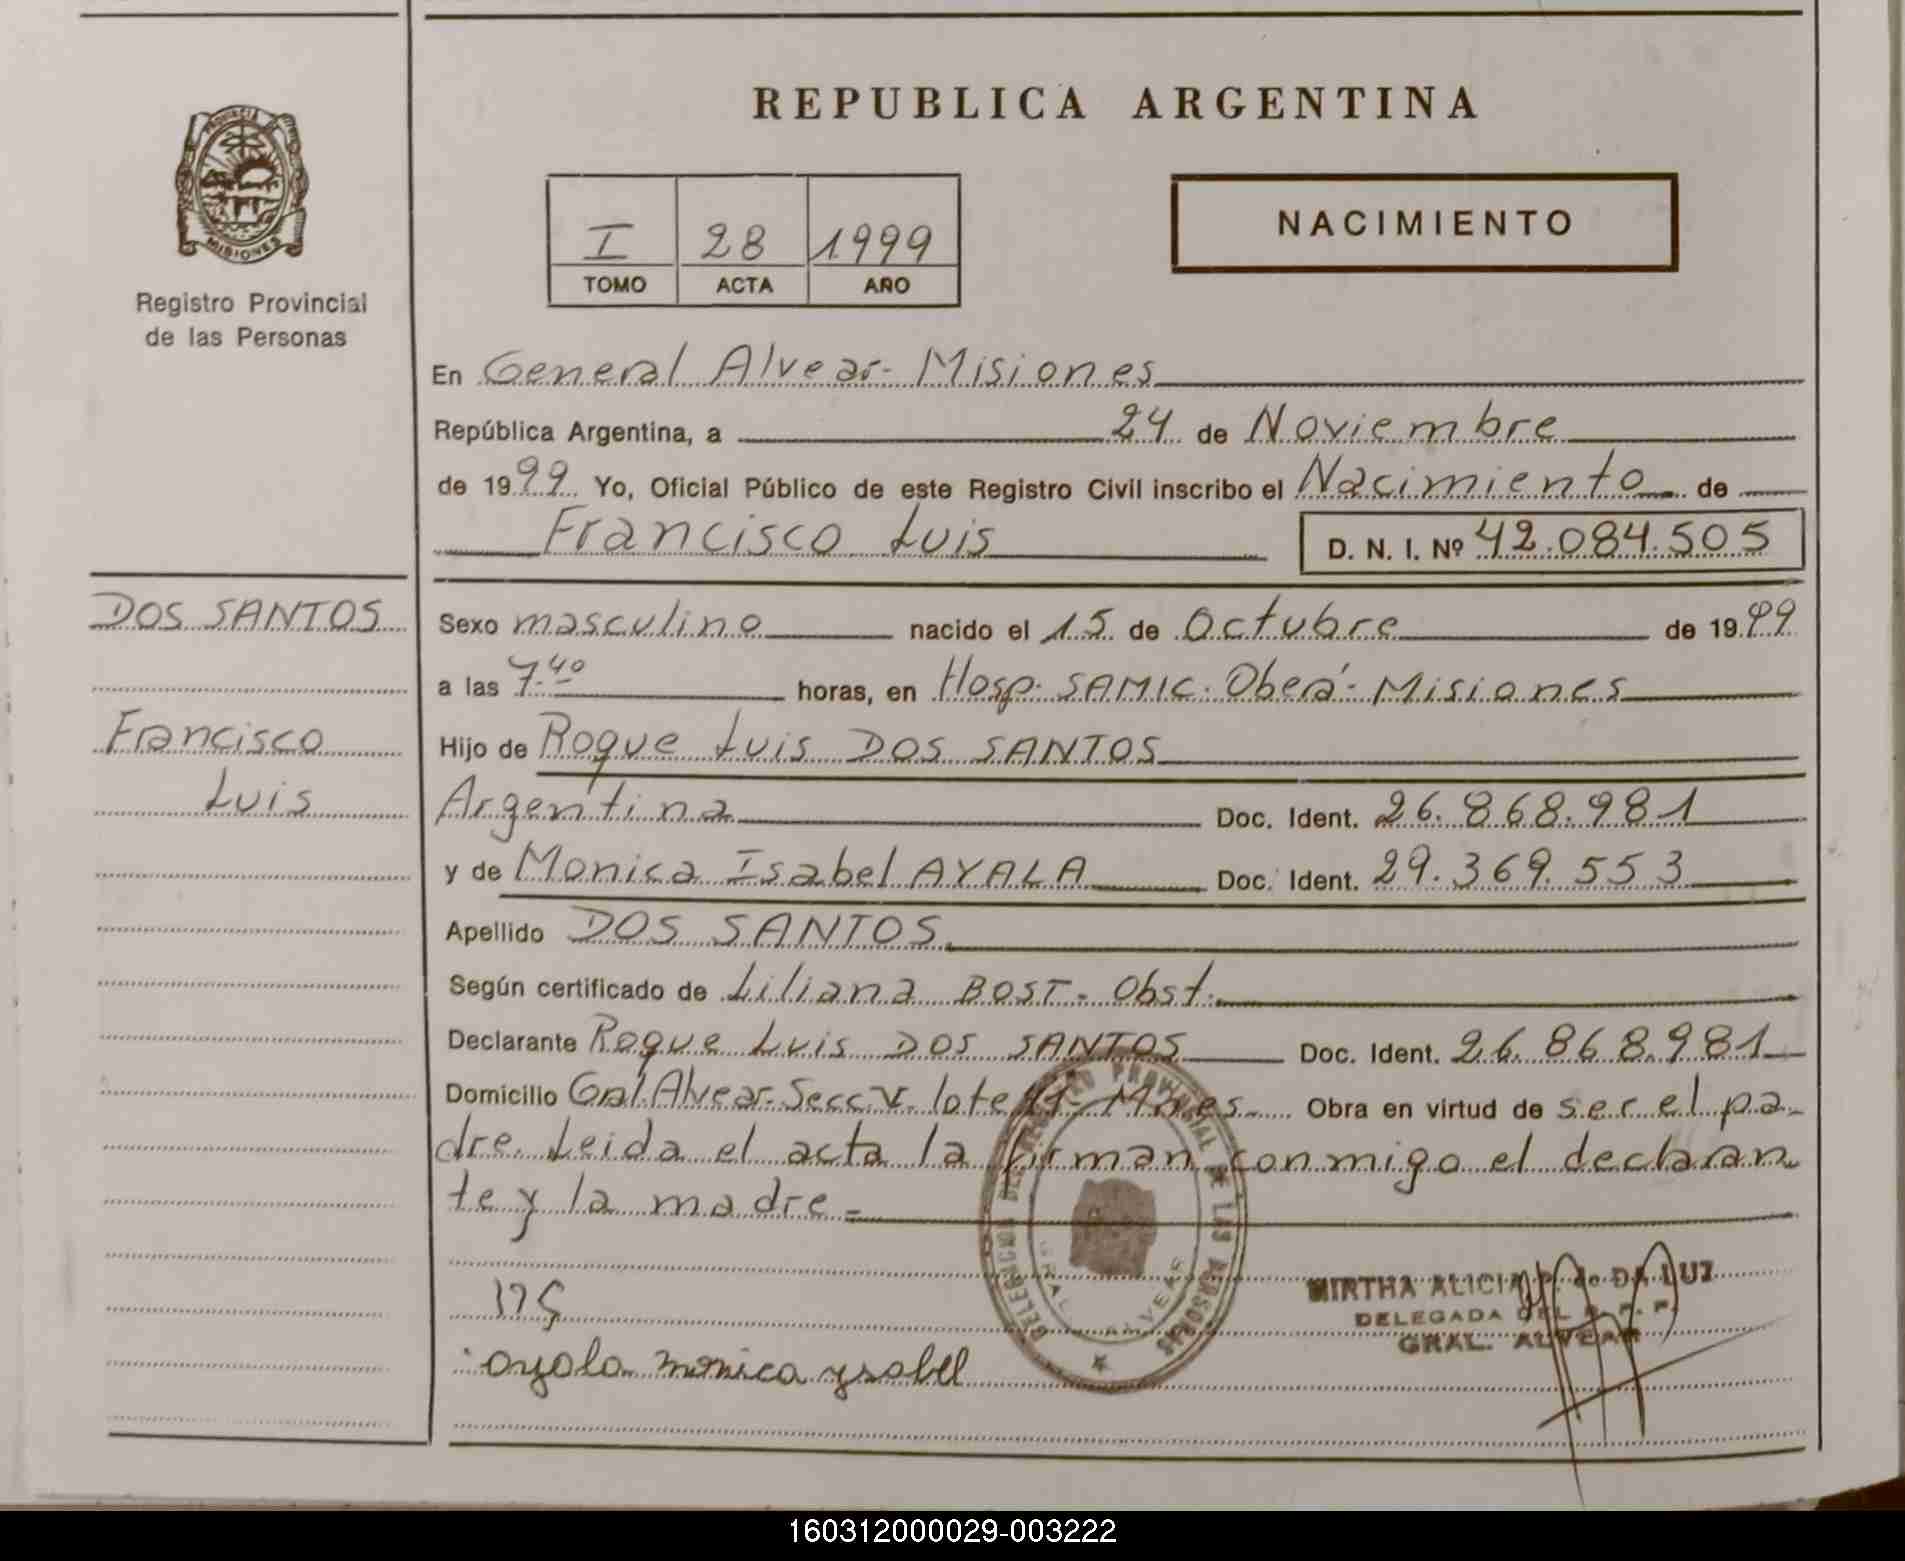 REPUBLICA ARGENTINA
PROVINCIA DE
MISIONES
Registro Provincial
de las Personas
I 28 1999
TOMO ACTA AÑO
NACIMIENTO
En General Alvear - Misiones
República Argentina, a 24 de Noviembre
de 1999 Yo, Oficial Público de este Registro Civil inscribo el Nacimiento de
Francisco Luis D. N. I. Nº 42.084.505
DOS SANTOS
Francisco
Luis
Sexo masculino nacido el 15 de Octubre de 1999
a las 7.40 horas, en Hosp. SAMIC. Oberá - Misiones
Hijo de Roque Luis DOS SANTOS
Argentina Doc. Ident. 26.868.981
y de Monica Isabel AYALA Doc. Ident. 29.369.553
Apellido DOS SANTOS
Según certificado de Liliana BOST - Obst.
Declarante Roque Luis DOS SANTOS Doc. Ident. 26.868.981
Domicilio Gral Alvear. Secc. V. lote Mnes Obra en virtud de ser el pa-
dre. Leida el acta la firman conmigo el declaran-
te y la madre -
DELEGACION DEL REGISTRO PROVINCIAL DE LAS PERSONAS
GRAL. ALVEAR
MIRTHA ALICIA de DA LUZ
DELEGADA DEL R. P. P.
GRAL. ALVEAR
ayala monica ysabel
160312000029-003222